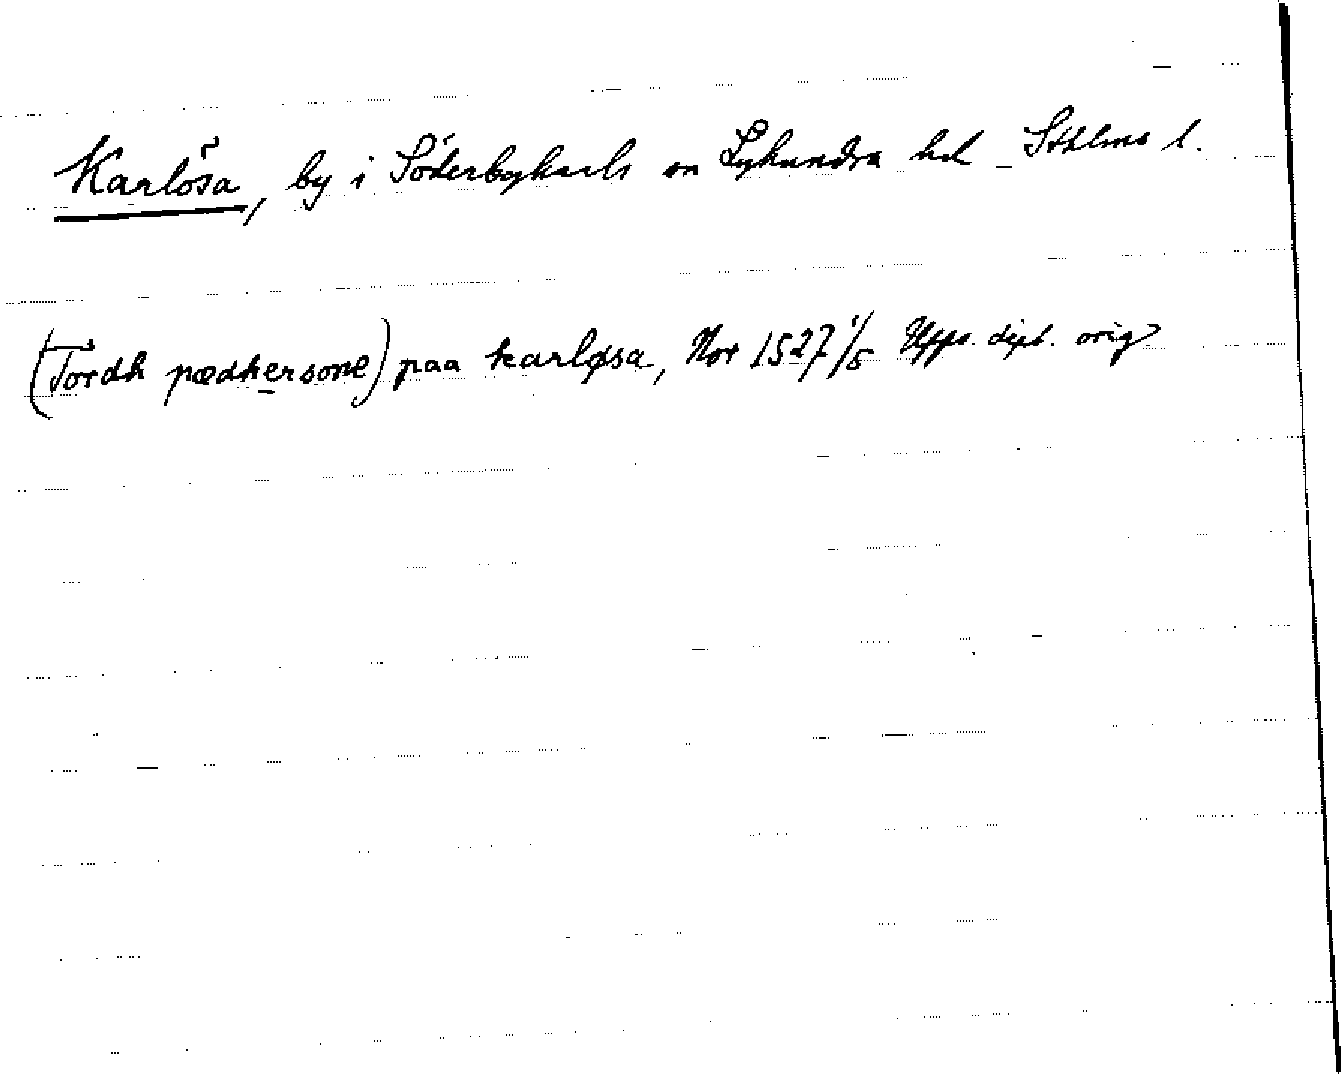 Karlösa, by i Söderbykarls sn Lyhundra hd Sthlms l.
(Tordh pædhersone) paa karløsa, Nor 1527 1/5 Upps. dipl. orig